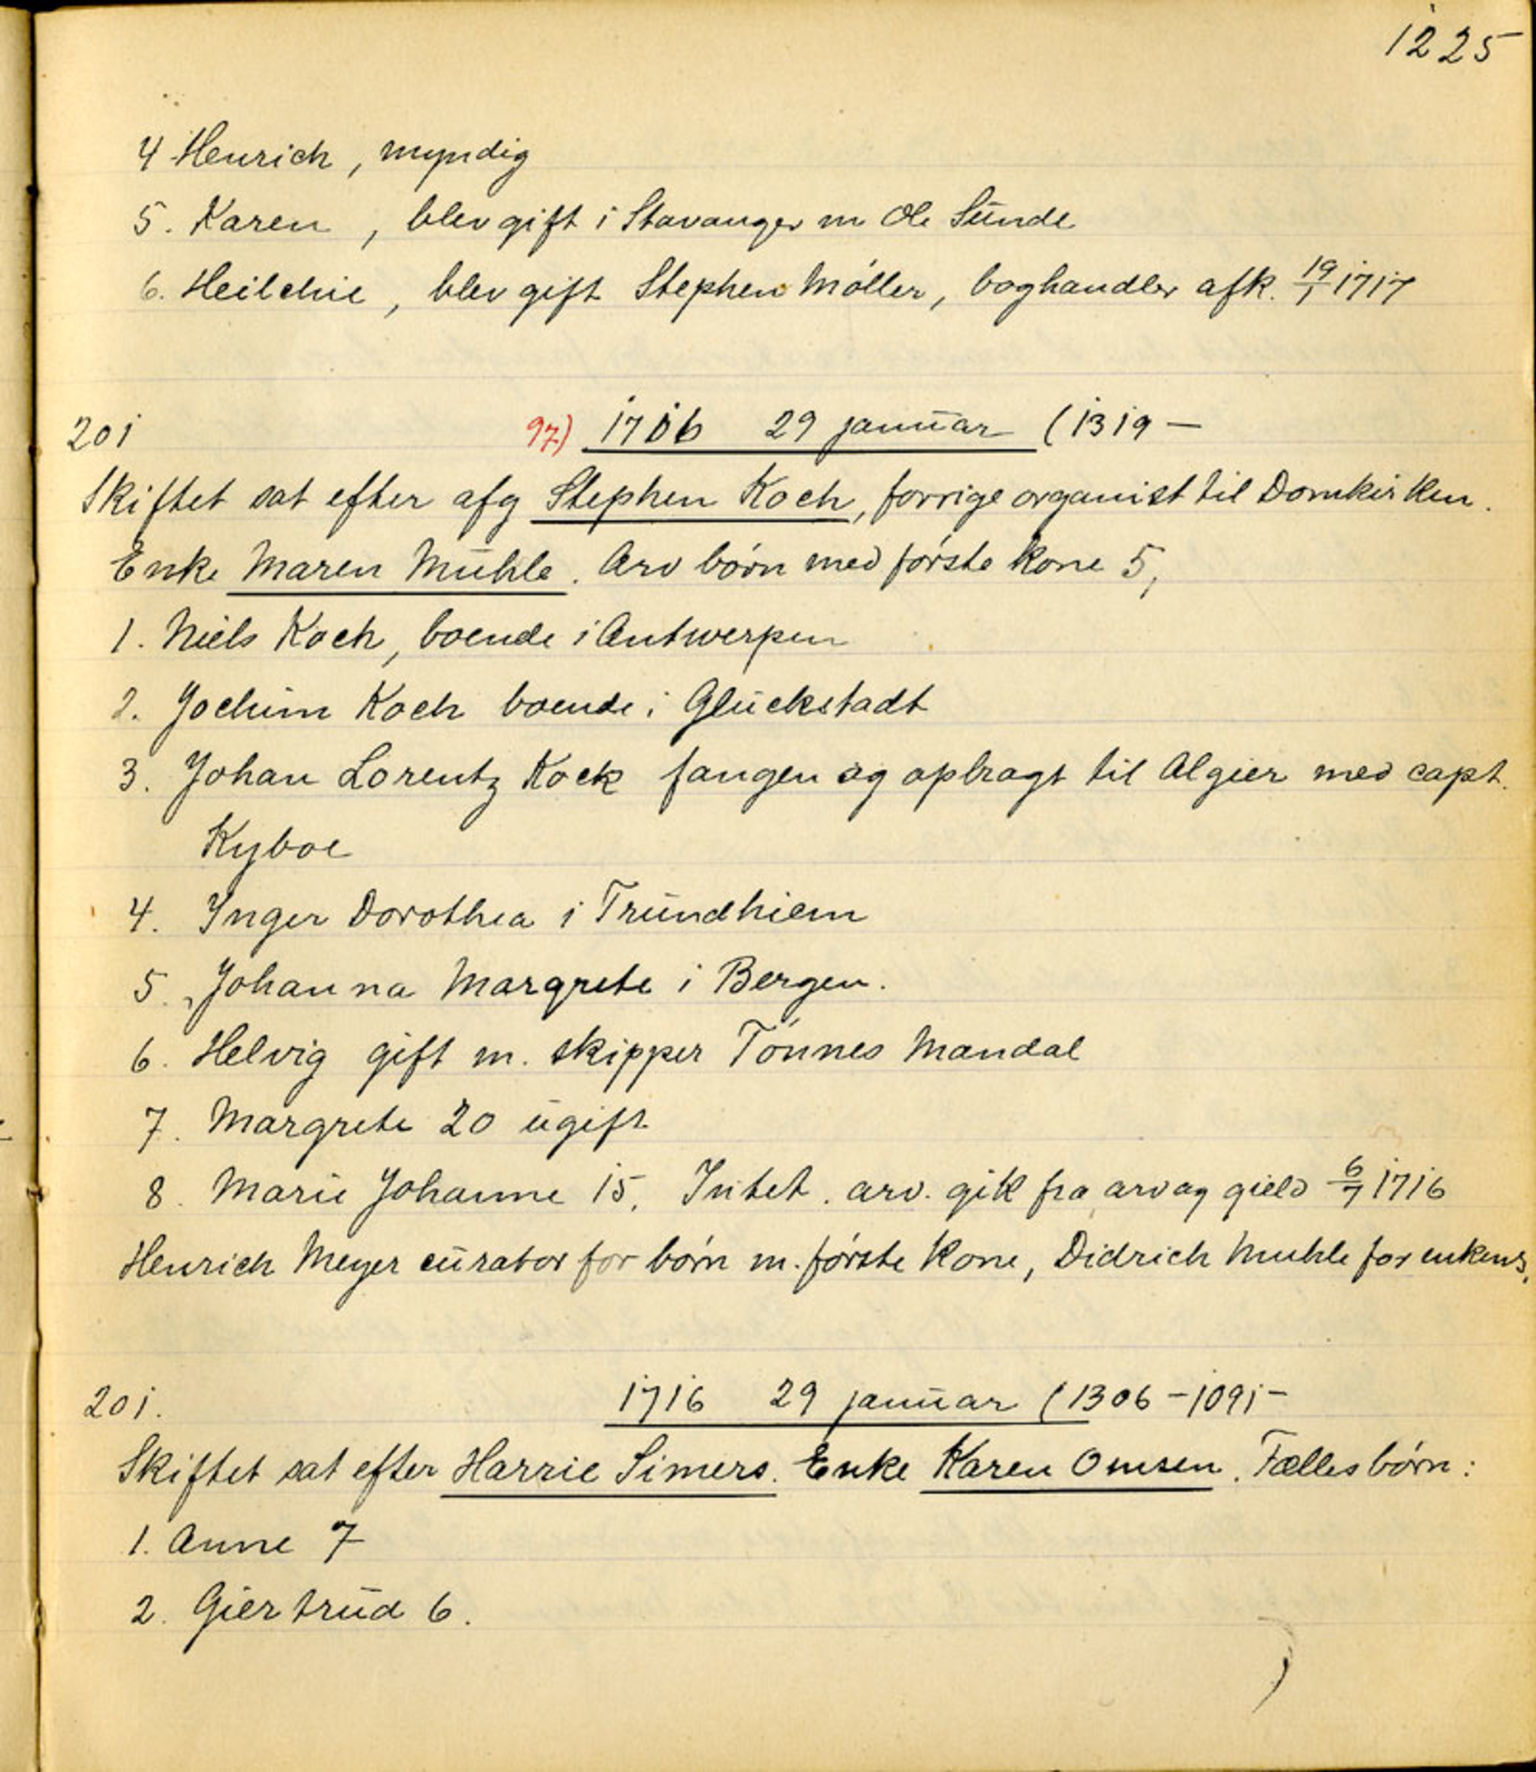 1225
4 Henrich, myndig
5. Karen, blev gift i Stavanger m Ole Sunde
6. Heilchie, blev gift Stephen Møller, boghandler afk. 19/1 1717
201 97) 1716 29 januar (1319 —
Skiftet sat efter afg Stephen Koch, forrige organist til Domkirken.
Enke Maren Muhle. Arv børn med første kone 5,
1. Niels Koch, boende i Antwerpen
2. Jochim Koch boende i Gluckstadt
3. Johan Lorentz Kock fangen og opbragt til Algier med capt.
Kyboe
4. Inger Dorothea i Trundhiem
5. Johanna Margrete i Bergen.
6. Helvig gift m. skipper Tønnes Mandal
7. Margrete 20 ugift
8. Marie Johanne 15. Intet. arv. gik fra arv og gield 6/7 1716
Henrich Meyer curator for børn m. første kone, Didrich Muhle for enkens.
201. 1716 29 januar (1306 - 1091 -
Skiftet sat efter Harrie Simers. Enke Karen Omsen. Fælles børn:
1. Anne 7
2. Giertrud 6.